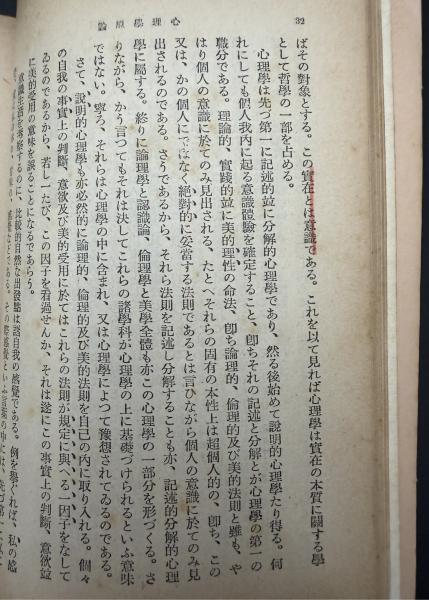 32
心理學原論
ばその對象とする。この實在とは意識である。これを以て見れば心理學は實在の本質に關する學
として哲學の一部を占める。
心理學は先づ第一に記述的竝に分解的心理學であり、然る後始めて說明的心理學たり得る。何
れにしても個人我內に起る意識體驗を確定すること、卽ちそれの記述と分解とが心理學の第一の
職分である。理論的、實踐的竝に美的理性の命法、卽ち論理的、倫理的及び美的法則と雖も、や
はり個人の意識に於てのみ見出される、たとへそれらの固有の本性上は超個人的の、卽ち、この
又は、かの個人にではなく絕對的に妥當する法則であるとは言ひながら個人の意識に於てのみ見
出されるのである。さうであるから、それら法則を記述し分解することも亦、記述的分解的心理
學に屬する。終りに論理學と認識論、倫理學と美學全體も亦この心理學の一部分を形づくる。さ
りながら、かう言つてもそれは決してこれらの諸學科が心理學の上に基礎づけられるといふ意味
ではない。寧ろ、それらは心理學の中に含まれ、又は心理學によつて豫想されてゐるのである。
さて、說明的心理學も亦必然的に論理的、倫理的及び美的法則を自己の內に取り入れる。個々
の自我の事實上の判斷、意欲及び美的受用に於てはこれらの法則が規定に與へる一因子をなして
ゐるのであるから、若し一たび、この因子を看過せんか、それは遂にこの事實上の判斷、意欲竝
に美的受用の意味を誤ることになるであらう。
意識生活を考察するのに、比較的自然な出發點は逑自我の感覺である。例を擧ぐれば、私の感